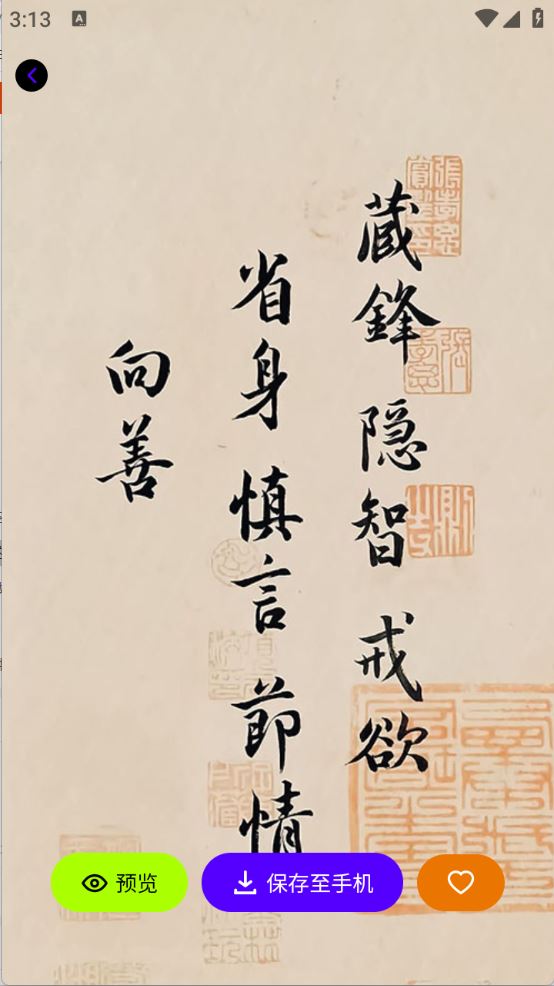 3:13
藏鋒 隐智 戒欲
省身 慎言 節情
向善
预览
保存至手机